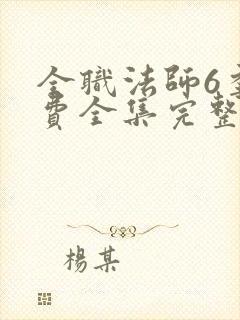 全職法師6
費全集完整
楊某